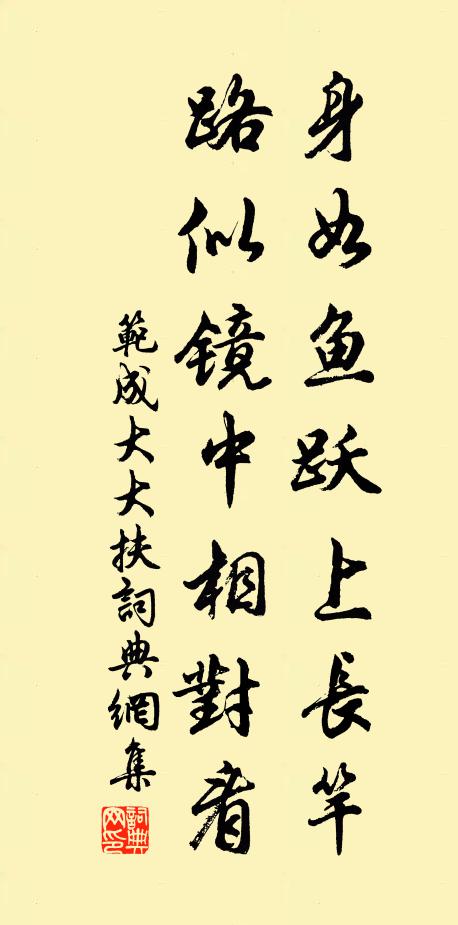 身如鱼跃上長竿
路似镜中相對看
範成大大扶詞典網集
詞典网印